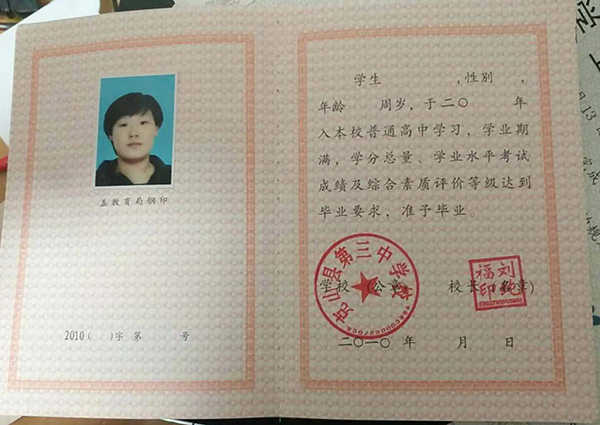 盖教育局钢印
2010( )字 第 号
学生 ,性别 ,
年龄 周岁,于二〇 年
入本校普通高中学习,学业期
满,学分总量、学业水平考试
成绩及综合素质评价等级达到
毕业要求,准予毕业。
克山县第三中学校
学校 (公章)
校长(签章)
二〇一〇 年 月 日